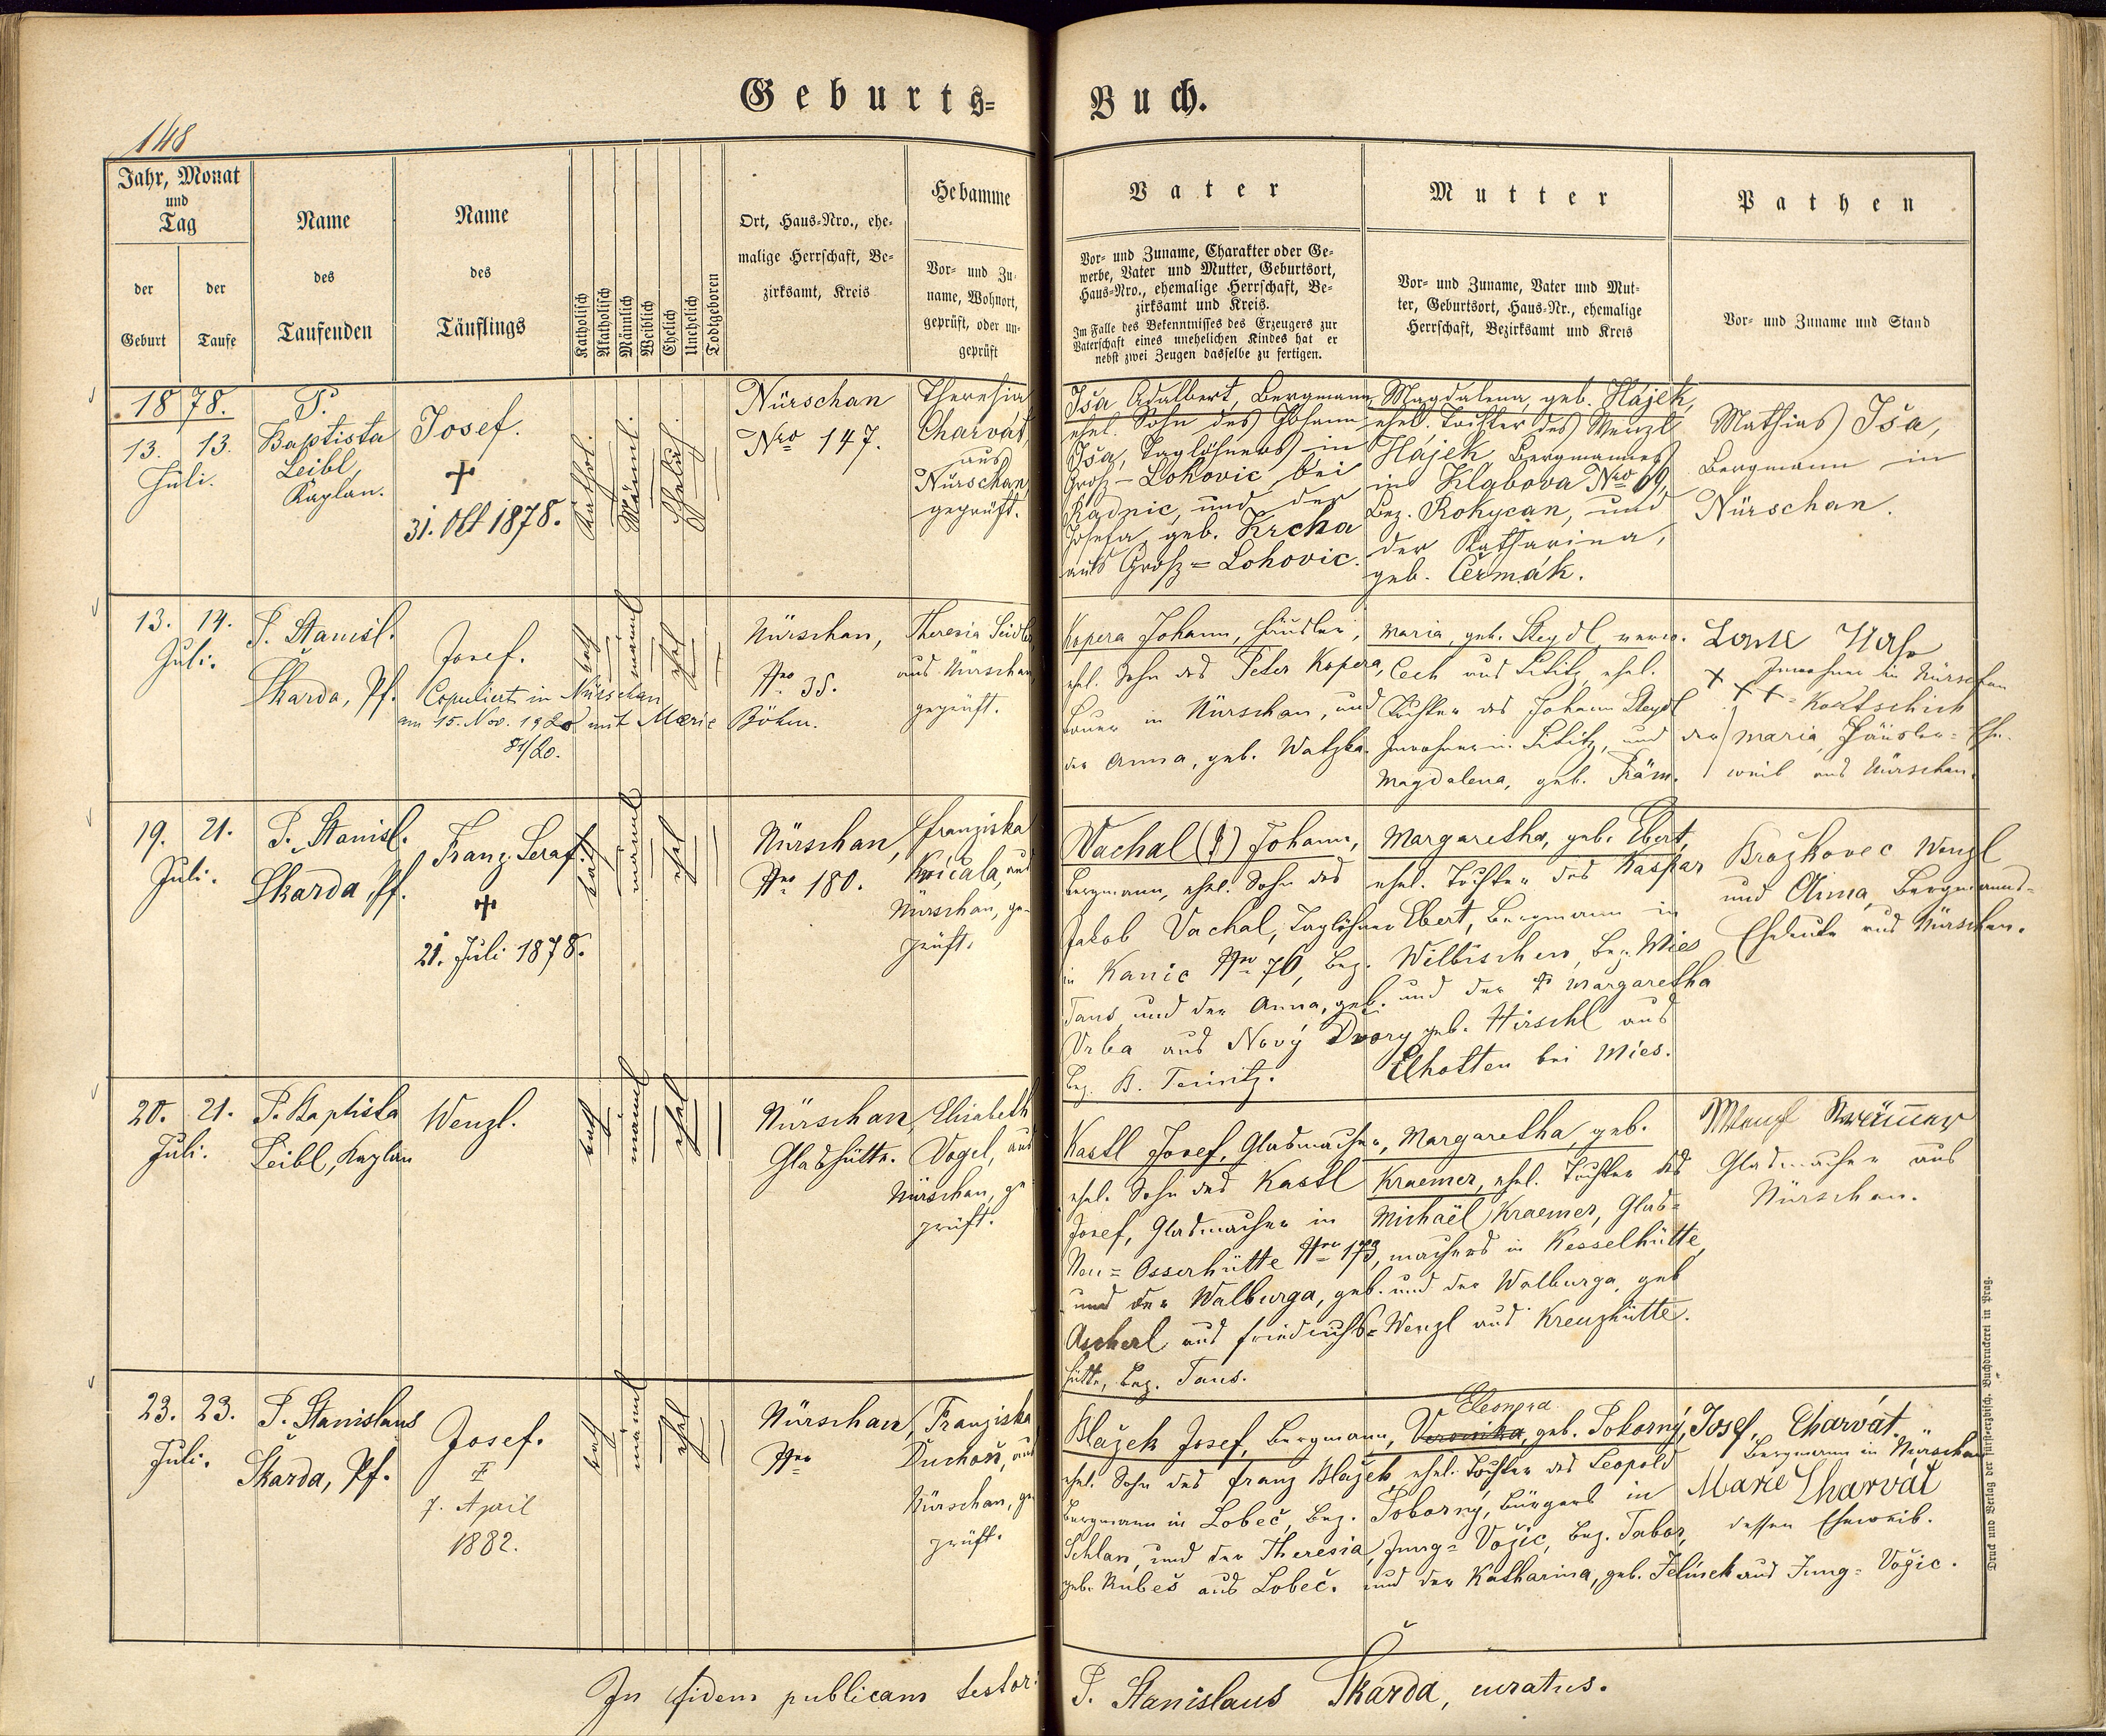 Geburts-Buch.
148
Jahr, Monat
und
Tag
der
Geburt
der
Taufe
Name
des
Taufenden
Name
des
Täuflings
Katholisch
Akatholisch
Männlich
Weiblich
Ehelich
Unehelich
Todtgeboren
Ort, Haus-Nro., ehe-
malige Herrschaft, Be-
zirksamt, Kreis
Hebamme
Vor- und Zu-
name, Wohnort,
geprüft, oder un-
geprüft
Vater
Vor- und Zuname, Charakter oder Ge-
werbe, Vater und Mutter, Geburtsort,
Haus-Nro., ehemalige Herrschaft, Be-
zirksamt und Kreis.
Im Falle des Bekenntnisses des Erzeugers zur
Vaterschaft eines unehelichen Kindes hat er
nebst zwei Zeugen dasselbe zu fertigen.
Mutter
Vor- und Zuname, Vater und Mut-
ter, Geburtsort, Haus-Nr., ehemalige
Herrschaft, Bezirksamt und Kreis
Pathen
Vor- und Zuname und Stand
1878.
13.
Juli.
13.
P.
Baptista
Leibl,
Kaplan.
Josef.
+
31. Okt 1878.
Kathol.
Männl.
Ehelich.
Nürschan
Nro 147.
Theresia
Charvát,
aus
Nürschan
geprüft.
Iša Adalbert, Bergmann,
ehel. Sohn des Johann
Iša, Taglöhners in
Groß-Lohovic bei
Radnic, und der
Josefa, geb. Krcha
aus Groß-Lohovic.
Magdalena, geb. Hájek,
ehel. Tochter des Wenzl
Hájek Bergmannes
in Klabova Nro 69,
Bez. Rokycan, und
der Katharina,
geb. Čermák.
Mathias Iša,
Bergmann in
Nürschan.
13.
Juli.
14.
P. Stanisl.
Škarda, Pf.
Josef.
Copuliert in Nürschan
am 15. Nov. 1920 mit Marie Böhm.
81/20.
kath
männl
ehel
Nürschan,
Nro 35.
Theresia Seidler
aus Nürschan,
geprüft.
Kopera Johann, Häusler,
ehel. Sohn des Peter Kopera,
Bauer in Nürschan, und
der Anna, geb. Watzka.
Maria, geb. Steydl, verw.
Cech aus Lititz, ehel.
Tochter des Johann Steydl
Inwohner in Lititz, und der
Magdalena, geb. Träm.
Inwohner in Nürschan
+ + + Koatschich
Maria, Häusler-Ehe-
weib aus Nürschan.
19.
Juli.
21.
P. Stanisl.
Škarda, Pf.
Franz Seraf.
+
21. Juli 1878.
kath
männl
ehel
Nürschan,
Nro 180.
Franziska
Kvičala, aus
Nürschan, ge-
prüft.
Vachal Johann,
Bergmann, ehel. Sohn des
Jakob Vachal, Taglöhner
in Kanic Nro 76, Bez.
Taus und der Anna, geb.
Vrba aus Nový Dvory
Bez. B. Teinitz.
Margaretha, geb. Ebert,
ehel. Tochter des Kaspar
Ebert, Bergmann in
Wilbischen, Bez. Mies
und der + Margaretha
geb. Hirschl aus
Elhotten bei Mies.
Brožkovec Wenzl
und Anna, Bergmanns-
Eheleute aus Nürschan.
20.
Juli.
21.
P. Baptista
Leibl, Kaplan
Wenzl.
kath
männl
ehel
Nürschan
Glashütte.
Elisabeth
Vogel, aus
Nürschan, ge
prüft.
Kastl Josef, Glasmacher,
ehel. Sohn des Kastl
Josef, Glasmacher in
Neu-Osserhütte Nro 173,
und der Walburga, geb.
Ascherl aus Friedrichs-
hütte, Bez. Taus.
Margaretha, geb.
Kraemer, ehel. Tochter des
Michaël Kraemer, Glas-
machers in Kesselhütte,
und der Walburga, geb
Wenzl aus Kreuzhütte.
Wenzl Krämer
Glasmacher aus
Nürschan.
23.
Juli.
23.
P. Stanislaus
Škarda, Pf.
Josef.
7. April
1882.
kath
männl
ehel
Nürschan,
Nro
Franziska
Duchoň, aus
Nürschan, ge
prüft.
Blažek Josef, Bergmann,
ehel. Sohn des Franz Blažek,
Bergmann in Lobeč, Bez.
Schlan, und der Theresia
geb. Kubeš aus Lobeč.
Eleonora
Veronika, geb. Pokorný,
ehel. Tochter des Leopold
Pokorný, Bürgers in
Jung-Vožic, Bez. Tabor,
und der Katharina, geb. Jelínek aus Jung-Vožic.
Josef Charvát.
Bergmann in Nürschan
Marie Charvát
dessen Eheweib.
Druck und Verlag der fürsterzbisch. Buchdruckerei in Prag.
In fidem publicam testor: P. Stanislaus Škarda, curatus.